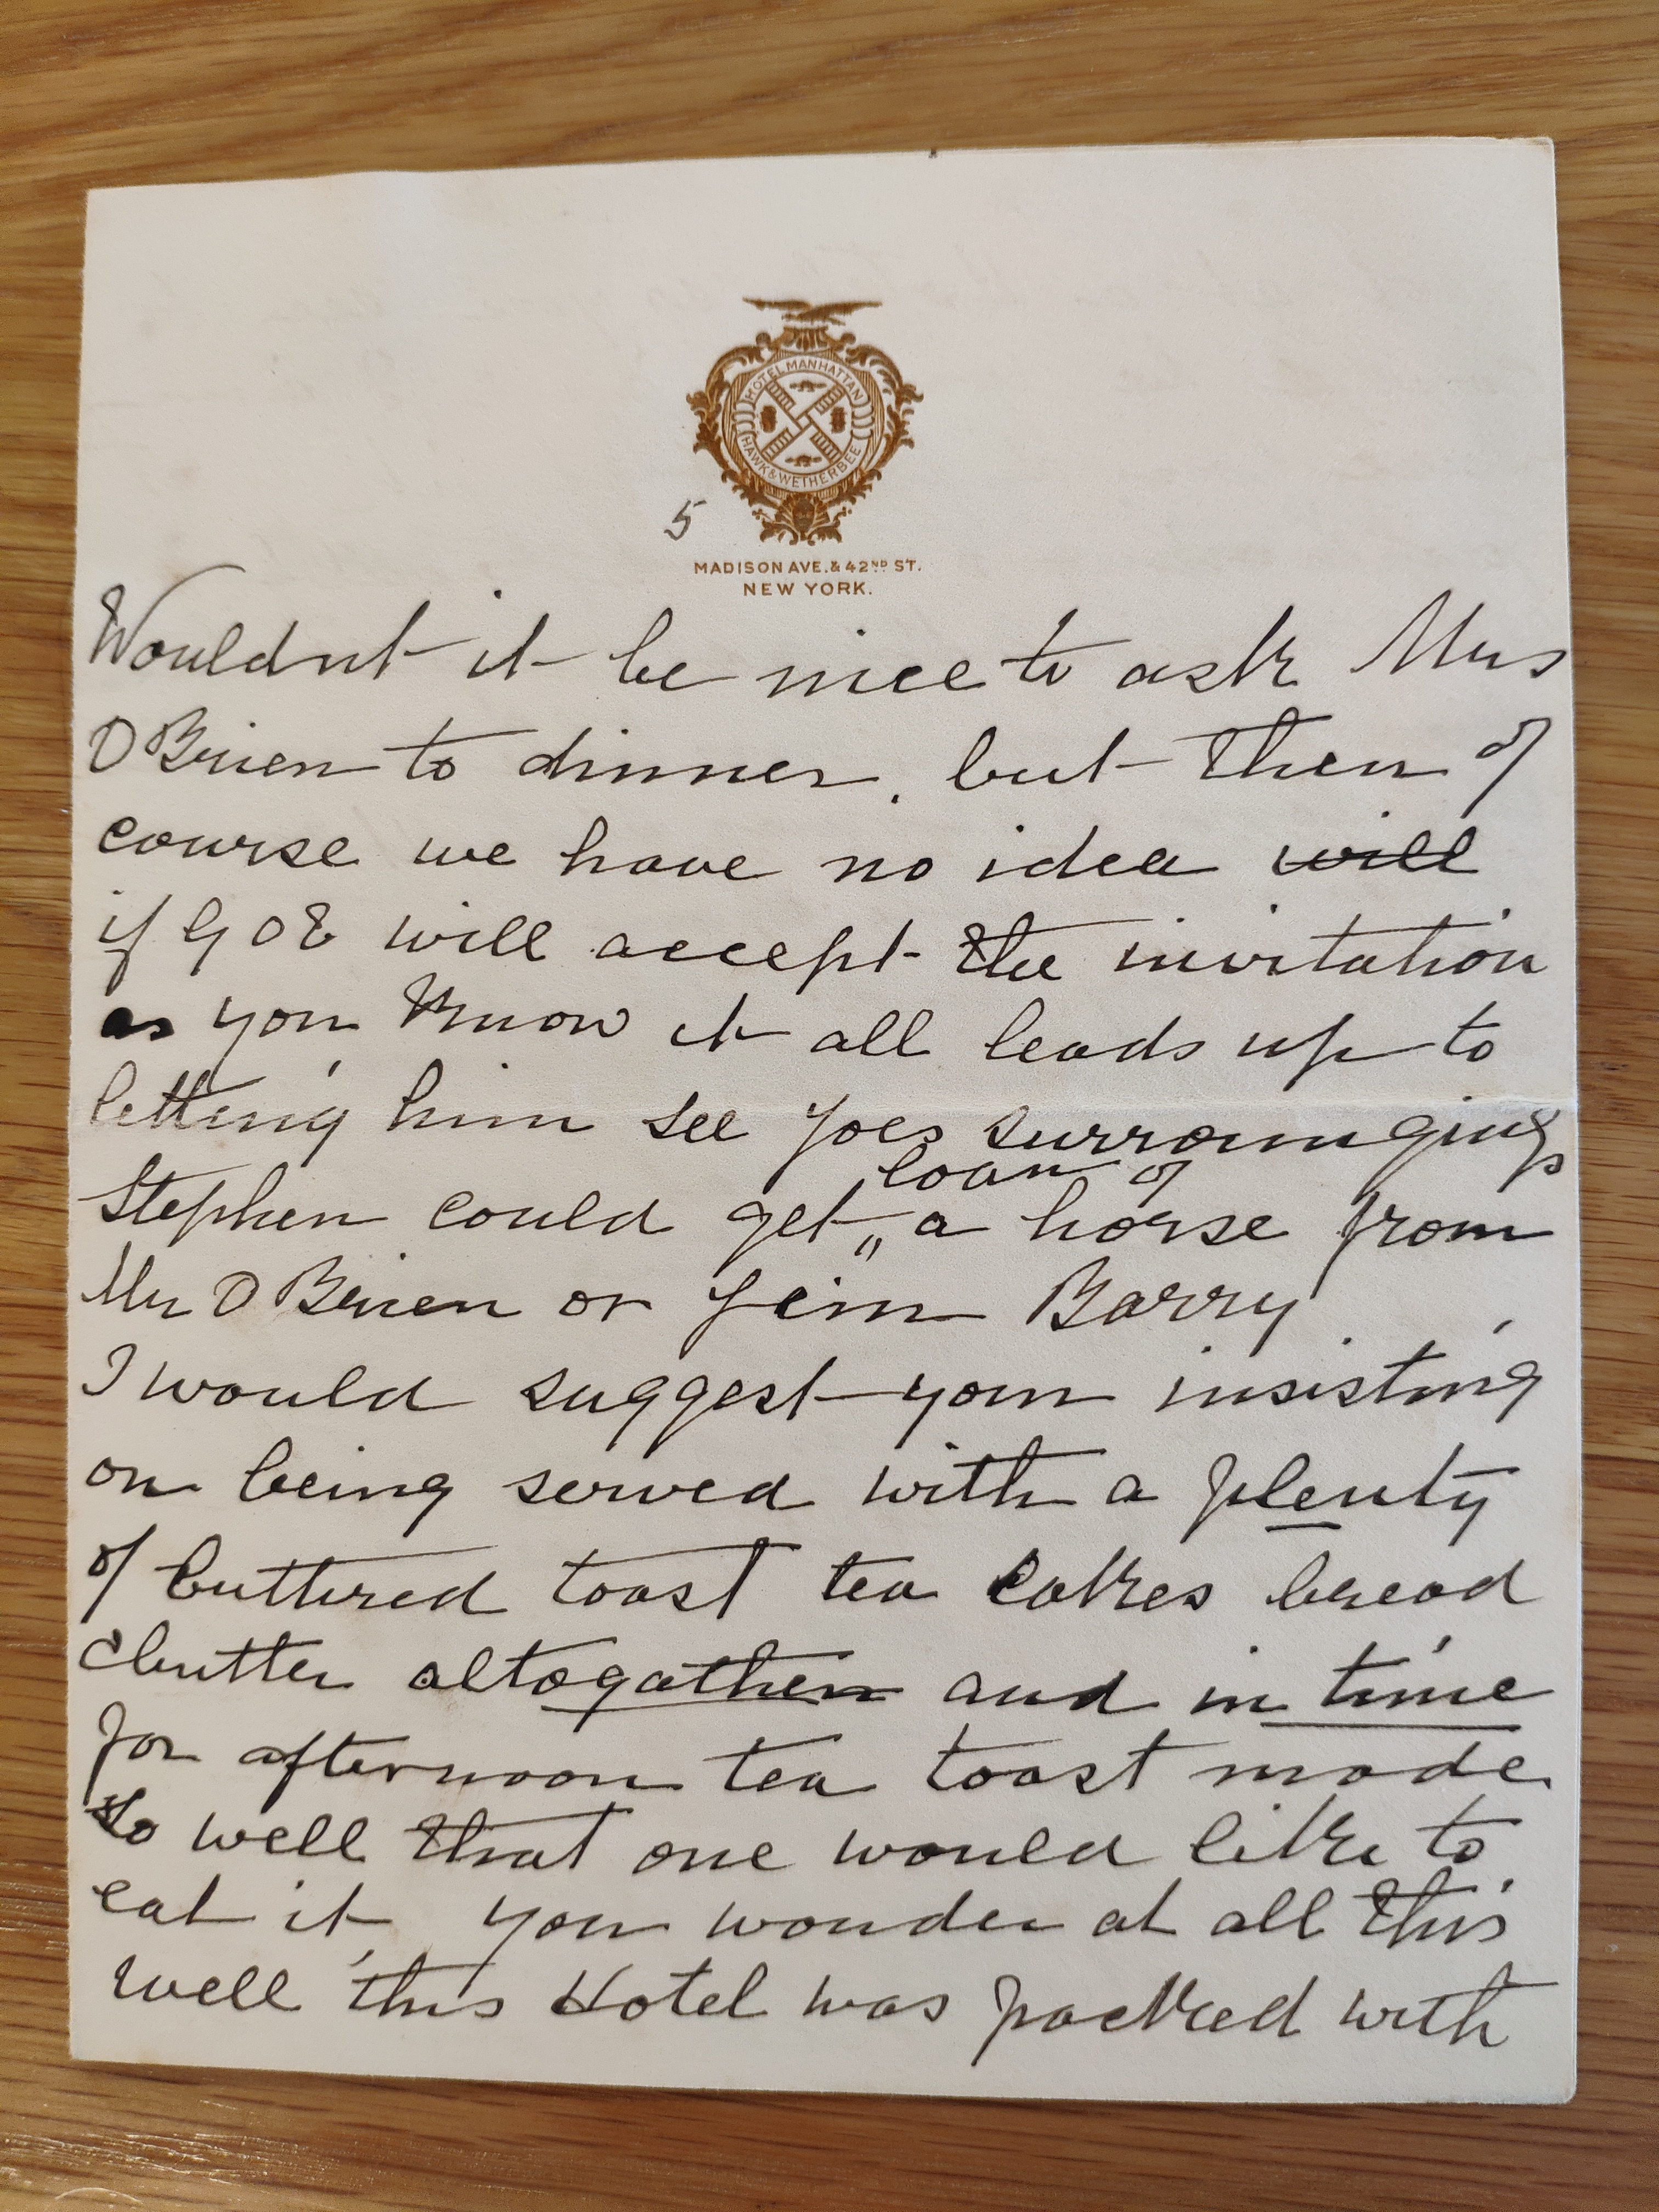 HOTEL MANHATTAN
HAWK & WETHERBEE
5
MADISON AVE. & 42ND ST.
NEW YORK.
Wouldnt it be nice to ask Mrs
O'Brien to dinner. but then of
course we have no idea will
if G O B will accept the invitation
as you know it all leads up to
letting him see Joes surroungings
loan of
Stephen could get " a horse from
Mr O Brien or Jim Barry
I would suggest your insisting
on being served with a plenty
of buttered toast tea cakes bread
& butter altogather and in time
for afternoon tea toast made
so well that one would like to
eat it, you wonder at all this
well this Hotel was packed with